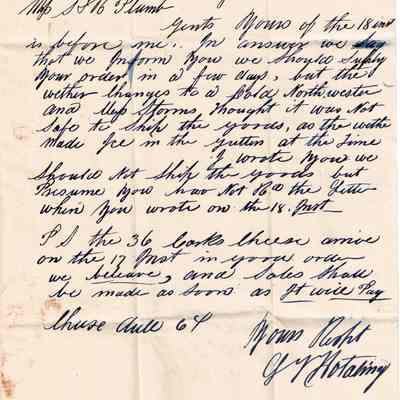 Mess S & H Plumb
Gents Yours of the 18 inst
is before me. In answer we say
that we inform you we should supply
your order in a few days, but the
wether changes to a Cold North wester
and Mess Storms thought it was Not
Safe to Ship the goods, as the wethe
made Ice in the gutters at the time
I wrote you we
Should Not Ship the goods but
Presume you have Not the Letter
when you wrote on the 18. Inst
P S the 36 Casks Cheese arrive
on the 17 Inst in good order
we beleave, and Sales Shall
be made as Soon as It will Pay
64
Yours Respt
Hotaling